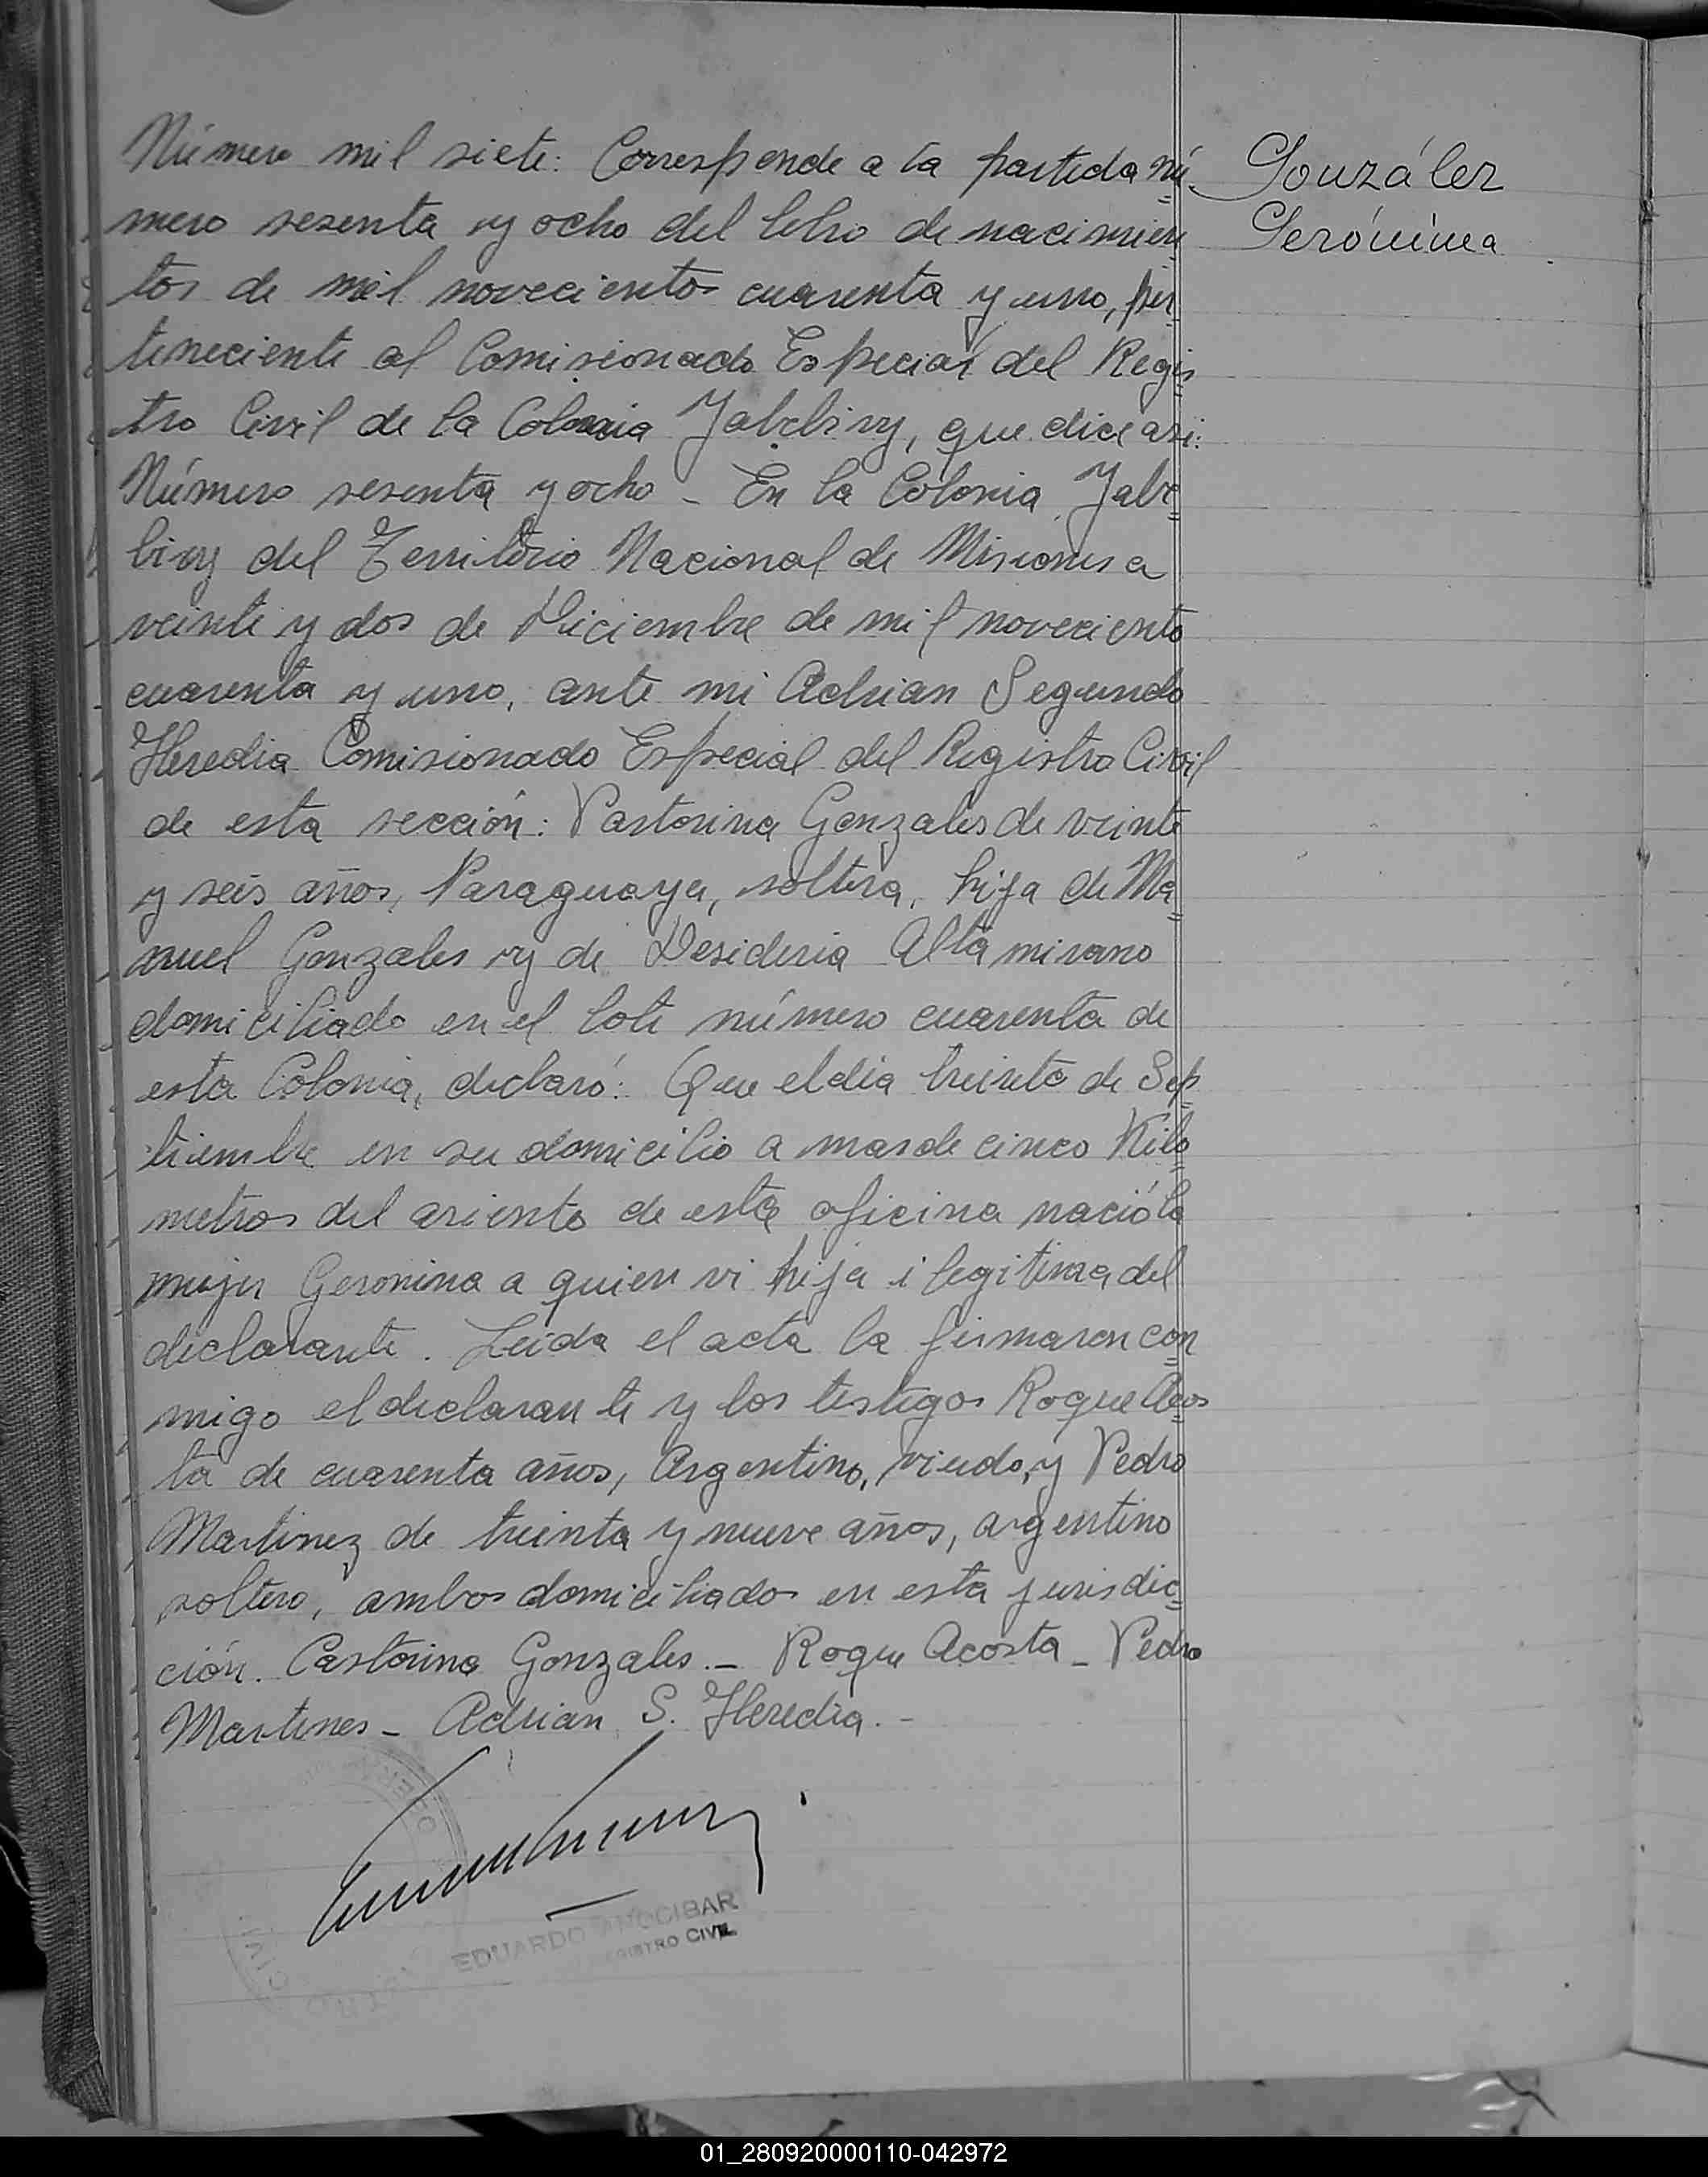 Número mil siete: Corresponde a la partida nú=
mero sesenta y ocho del libro de nacimien
tos de mil novecientos cuarenta y uno, per=
teneciente al Comisionado Especial del Regis
tro Civil de la Colonia Yabebiry, que dice asi:
Número sesenta y ocho - En la Colonia Yabe=
biry del Territorio Nacional de Misiones a
veinte y dos de Diciembre de mil noveciento
cuarenta y uno, ante mi Adrian Segundo
Heredia Comisionado Especial del Registro Civil
de esta sección: Pastorina Gonzales de veinte
y seis años, Paraguaya, soltera, hija de Ma=
nuel Gonzales y de Desideria Altamirano
domiciliado en el lote número cuarenta de
esta Colonia, declaró: Que el dia treinta de Sep=
tiembre en su domicilio a mas de cinco Kilo=
metros del asiento de esta oficina nació la
mujer Geronina a quien vi hija ilegitima del
declarante. Leida el acta la firmaron con=
migo el declarante y los testigos Roque Acos=
ta de cuarenta años, Argentino, viudo, y Pedro
Martinez de treinta y nueve años, argentino
soltero, ambos domiciliados en esta jurisdic=
ción. Castorina Gonzales.- Roque Acosta - Pedro
Martines - Adrian S. Heredia.-
González
Gerónima
EDUARDO ANOCIBAR
REGISTRO CIVIL
01_280920000110-042972